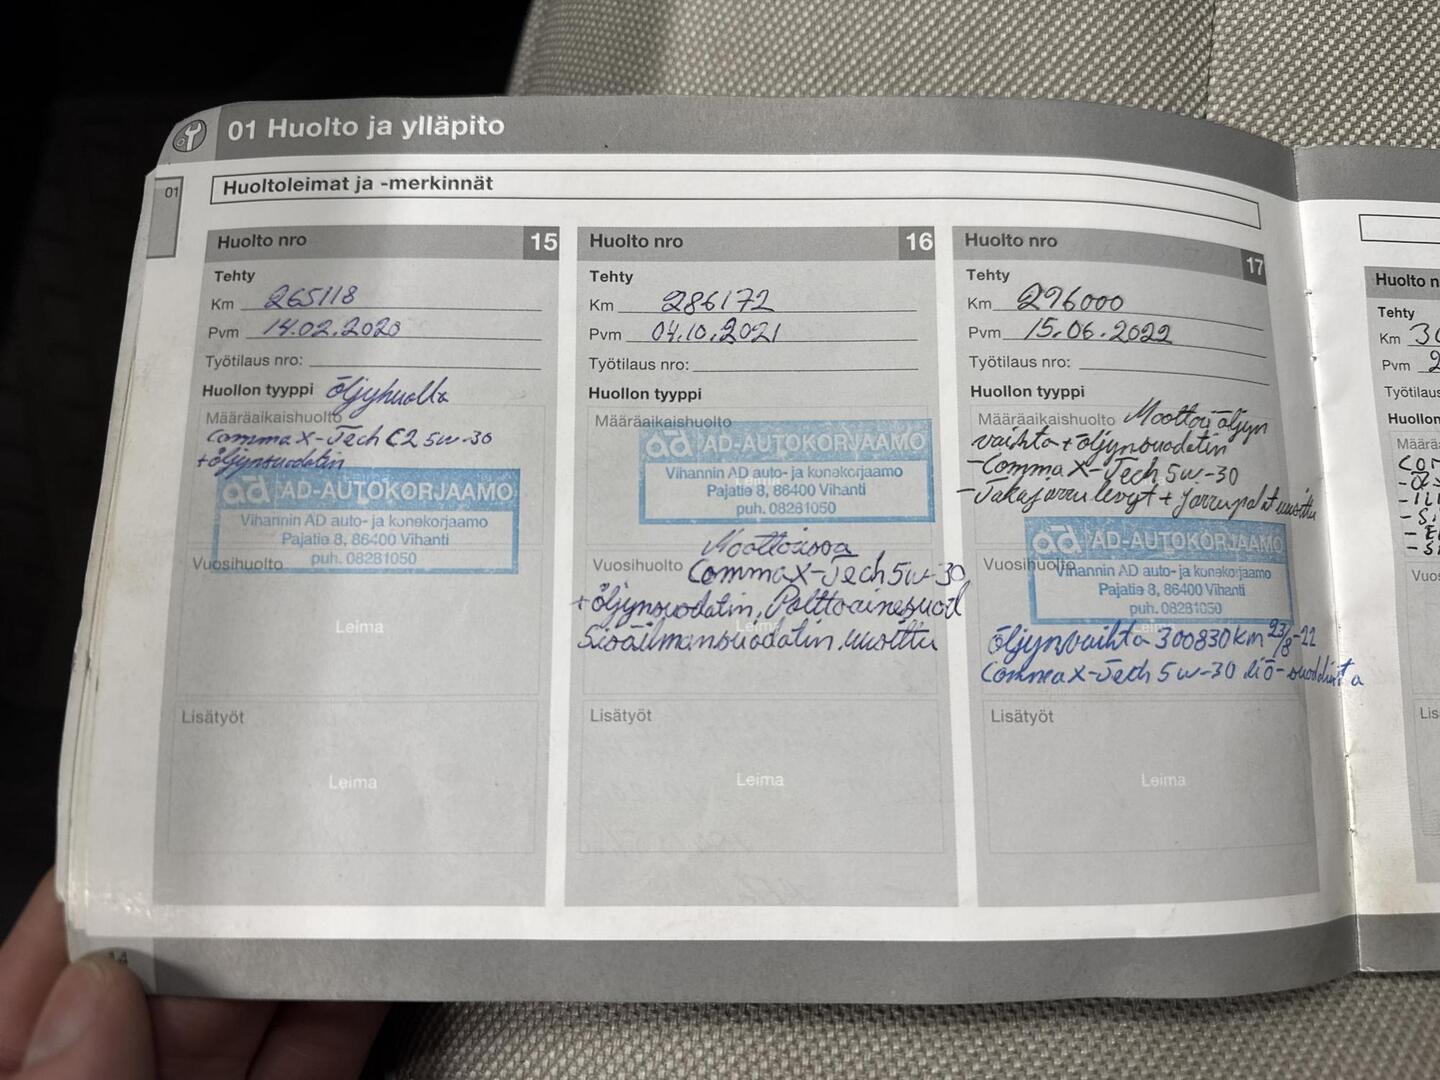 01 Huolto ja ylläpito
01
Huoltoleimat ja -merkinnät
Huolto nro 15
Tehty
Km 265118
Pvm 14.02.2020
Työtilaus nro:
Huollon tyyppi öljyhuolto
Määräaikaishuolto
Comma X-Tech C2 5w-30
+ öljynsuodatin
ad AD-AUTOKORJAAMO
Vihannin AD auto- ja konekorjaamo
Pajatie 8, 86400 Vihanti
puh. 08281050
Vuosihuolto
Leima
Lisätyöt
Leima
Huolto nro 16
Tehty
Km 286172
Pvm 04.10.2021
Työtilaus nro:
Huollon tyyppi
Määräaikaishuolto
ad AD-AUTOKORJAAMO
Leima
Vihannin AD auto- ja konekorjaamo
Pajatie 8, 86400 Vihanti
puh. 08281050
Vuosihuolto
Comma X-Tech 5w-30
+ öljynsuodatin, Polttoainesuod
Leima
Sisäilmansuodatin, uusittu
Lisätyöt
Leima
Huolto nro 17
Tehty
Km 296000
Pvm 15.06.2022
Työtilaus nro:
Huollon tyyppi
Määräaikaishuolto Moottoriöljyn
vaihto + öljynsuodatin
- Comma X-Tech 5w-30
- Takajarrulevyt + jarrupalat uusittu
ad AD-AUTOKORJAAMO
Vuosihuolto
Vihannin AD auto- ja konekorjaamo
Pajatie 8, 86400 Vihanti
puh. 08281050
Leima
öljynvaihto 300830 km 23/8-22
Comma X-Tech 5w-30
Lisätyöt
Leima
Huolto n
Tehty
Km 30
Pvm 2
Työtilaus
Huollon
Määrä
Vuos
Lis
14